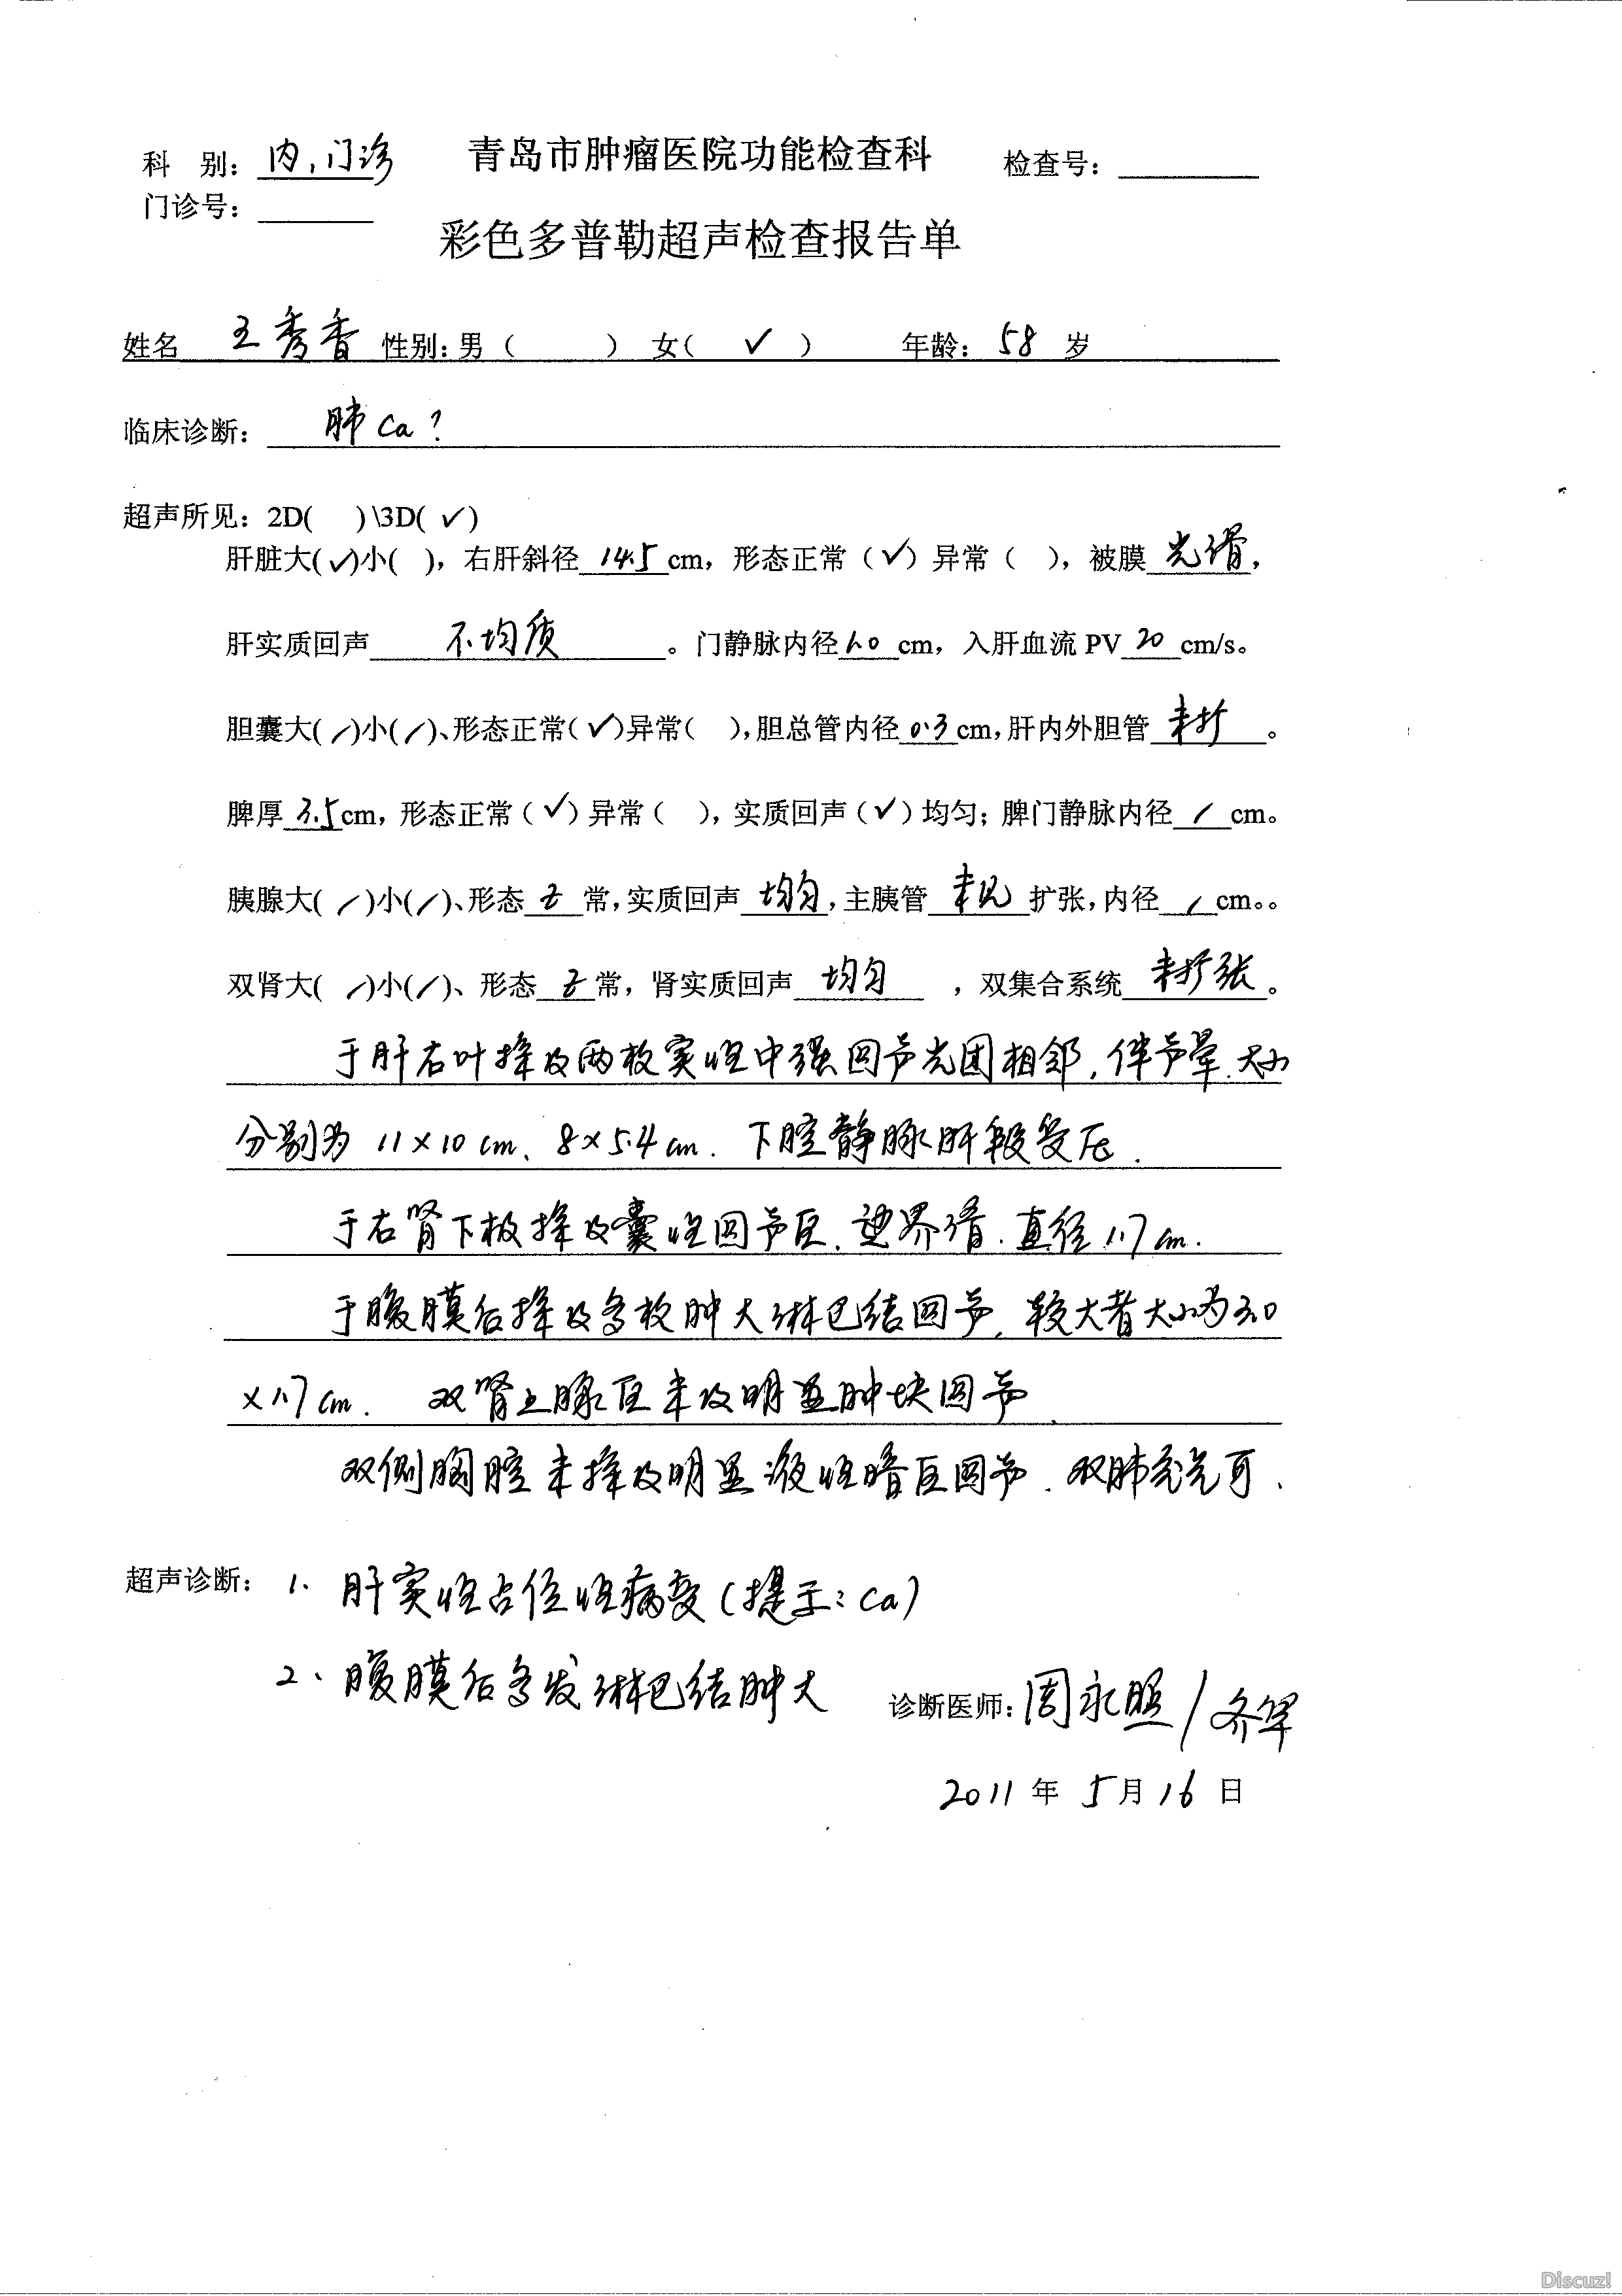 科 别：内，门诊 青岛市肿瘤医院功能检查科 检查号：
门诊号：
彩色多普勒超声检查报告单
姓名 王秀香 性别：男（ ） 女（ ✓ ） 年龄：58 岁
临床诊断： 肺 Ca？
超声所见：2D( )\3D( ✓ )
肝脏大(✓)小( )，右肝斜径 14.5 cm，形态正常（✓）异常（ ），被膜 光滑，
肝实质回声 不均质 。门静脉内径 1.0 cm，入肝血流 PV 20 cm/s。
胆囊大( ∕ )小( ∕ )、形态正常(✓)异常( )，胆总管内径 0.3 cm，肝内外胆管 未扩 。
脾厚 3.5 cm，形态正常（✓）异常（ ），实质回声（✓）均匀；脾门静脉内径 ∕ cm。
胰腺大( ∕ )小( ∕ )、形态 正 常，实质回声 均匀，主胰管 未见 扩张，内径 ∕ cm。。
双肾大( ∕ )小( ∕ )、形态 正 常，肾实质回声 均匀 ，双集合系统 未扩张 。
于肝右叶探及两枚实性中强回声光团相邻，伴声晕，大小
分别为 11×10 cm、8×5.4 cm．下腔静脉肝段受压．
于右肾下极探及囊性回声区，边界清．直径 1.7 cm．
于腹膜后探及多枚肿大淋巴结回声，较大者大小为 3.0
×1.7 cm． 双肾上腺区未及明显肿块回声．
双侧胸腔未探及明显液性暗区回声．双肺 可．
超声诊断：1、肝实性占位性病变（提示：Ca）
2、腹膜后多发淋巴结肿大
诊断医师：周永照/
2011 年 5 月 16 日
Discuz!